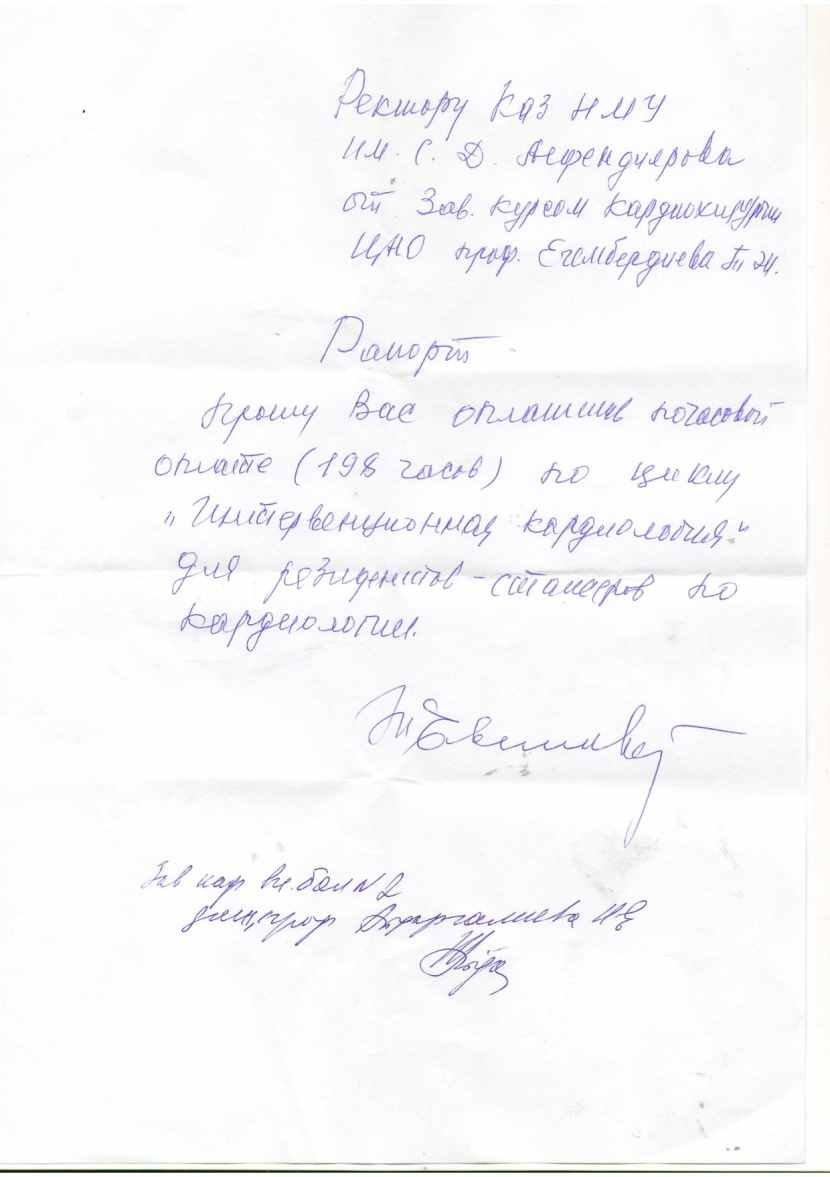 Ректору Каз НМУ
им. С. Д. Асфендиярова
от Зав. курсом кардиохирургии
ЦНО проф. Егембердиева
Рапорт
Прошу Вас оплатить почасовой
оплате (198 часов) по циклу
"Интервенционная кардиология"
для резидентов-стажеров по
кардиологии.
Зав каф вн. бол N 2
проф